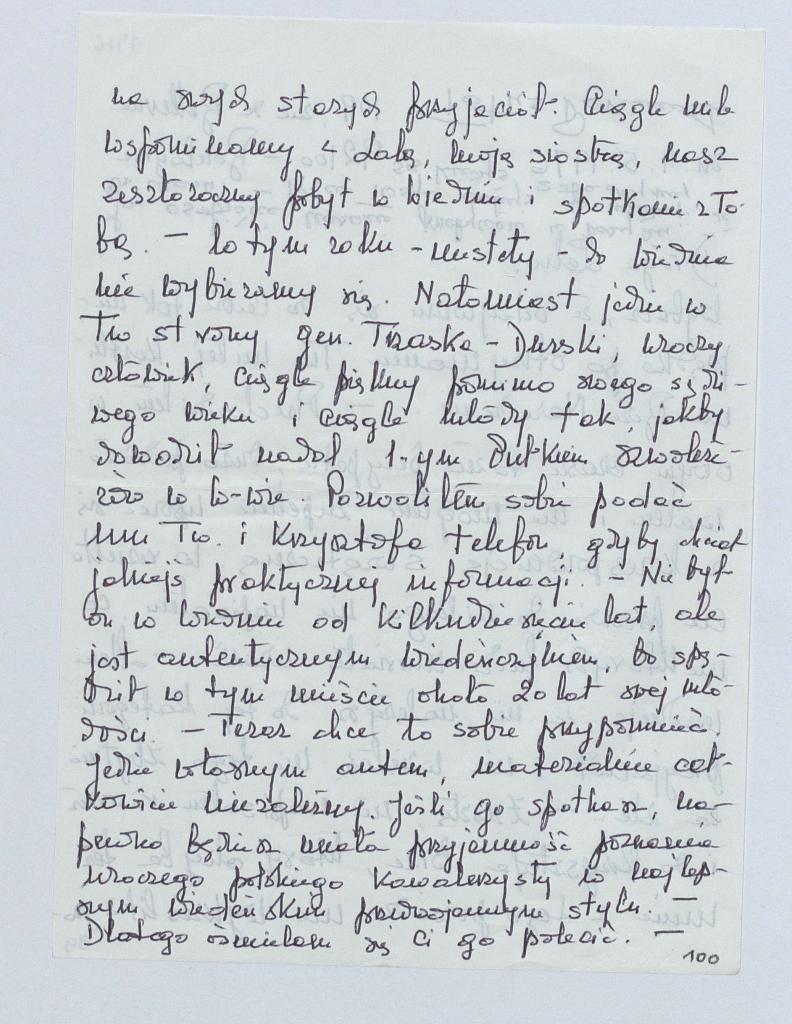 na swych starych przyjaciół. Ciągle mile
wspominamy z dalą, moją siostrą, nasz
zeszłoroczny pobyt w Wiedniu i spotkanie z To-
bą. — W tym roku - niestety - do Wiednia
nie wybieramy się. Natomiast jedzie w
Tw strony gen. Trzaska-Durski, uroczy
człowiek, ciągle piękny pomimo swego sędzi-
wego wieku i ciągle młody tak jakby
dowodził nadal 1-ym Pułkiem Szwoleże-
rów w W-wie. Pozwoliłem sobie podać
mu Tw. i Krzysztofa telefon, gdyby chciał
jakiejś praktycznej informacji. — Nie był
on w Wiedniu od kilkudziesięciu lat, ale
jest autentycznym Wiedeńczykiem, bo spę-
dził w tym mieście około 20 lat swej mło-
dości. — Teraz chce to sobie przypomnieć.
Jedzie własnym autem, materialnie cał-
kowicie niezależny. Jeśli go spotkasz, na-
pewno będziesz miała przyjemność poznania
uroczego polskiego kawalerzysty w najlep-
szym wiedeńskim przedwojennym stylu. —
Dlatego ośmielam się Ci go polecić. —
100